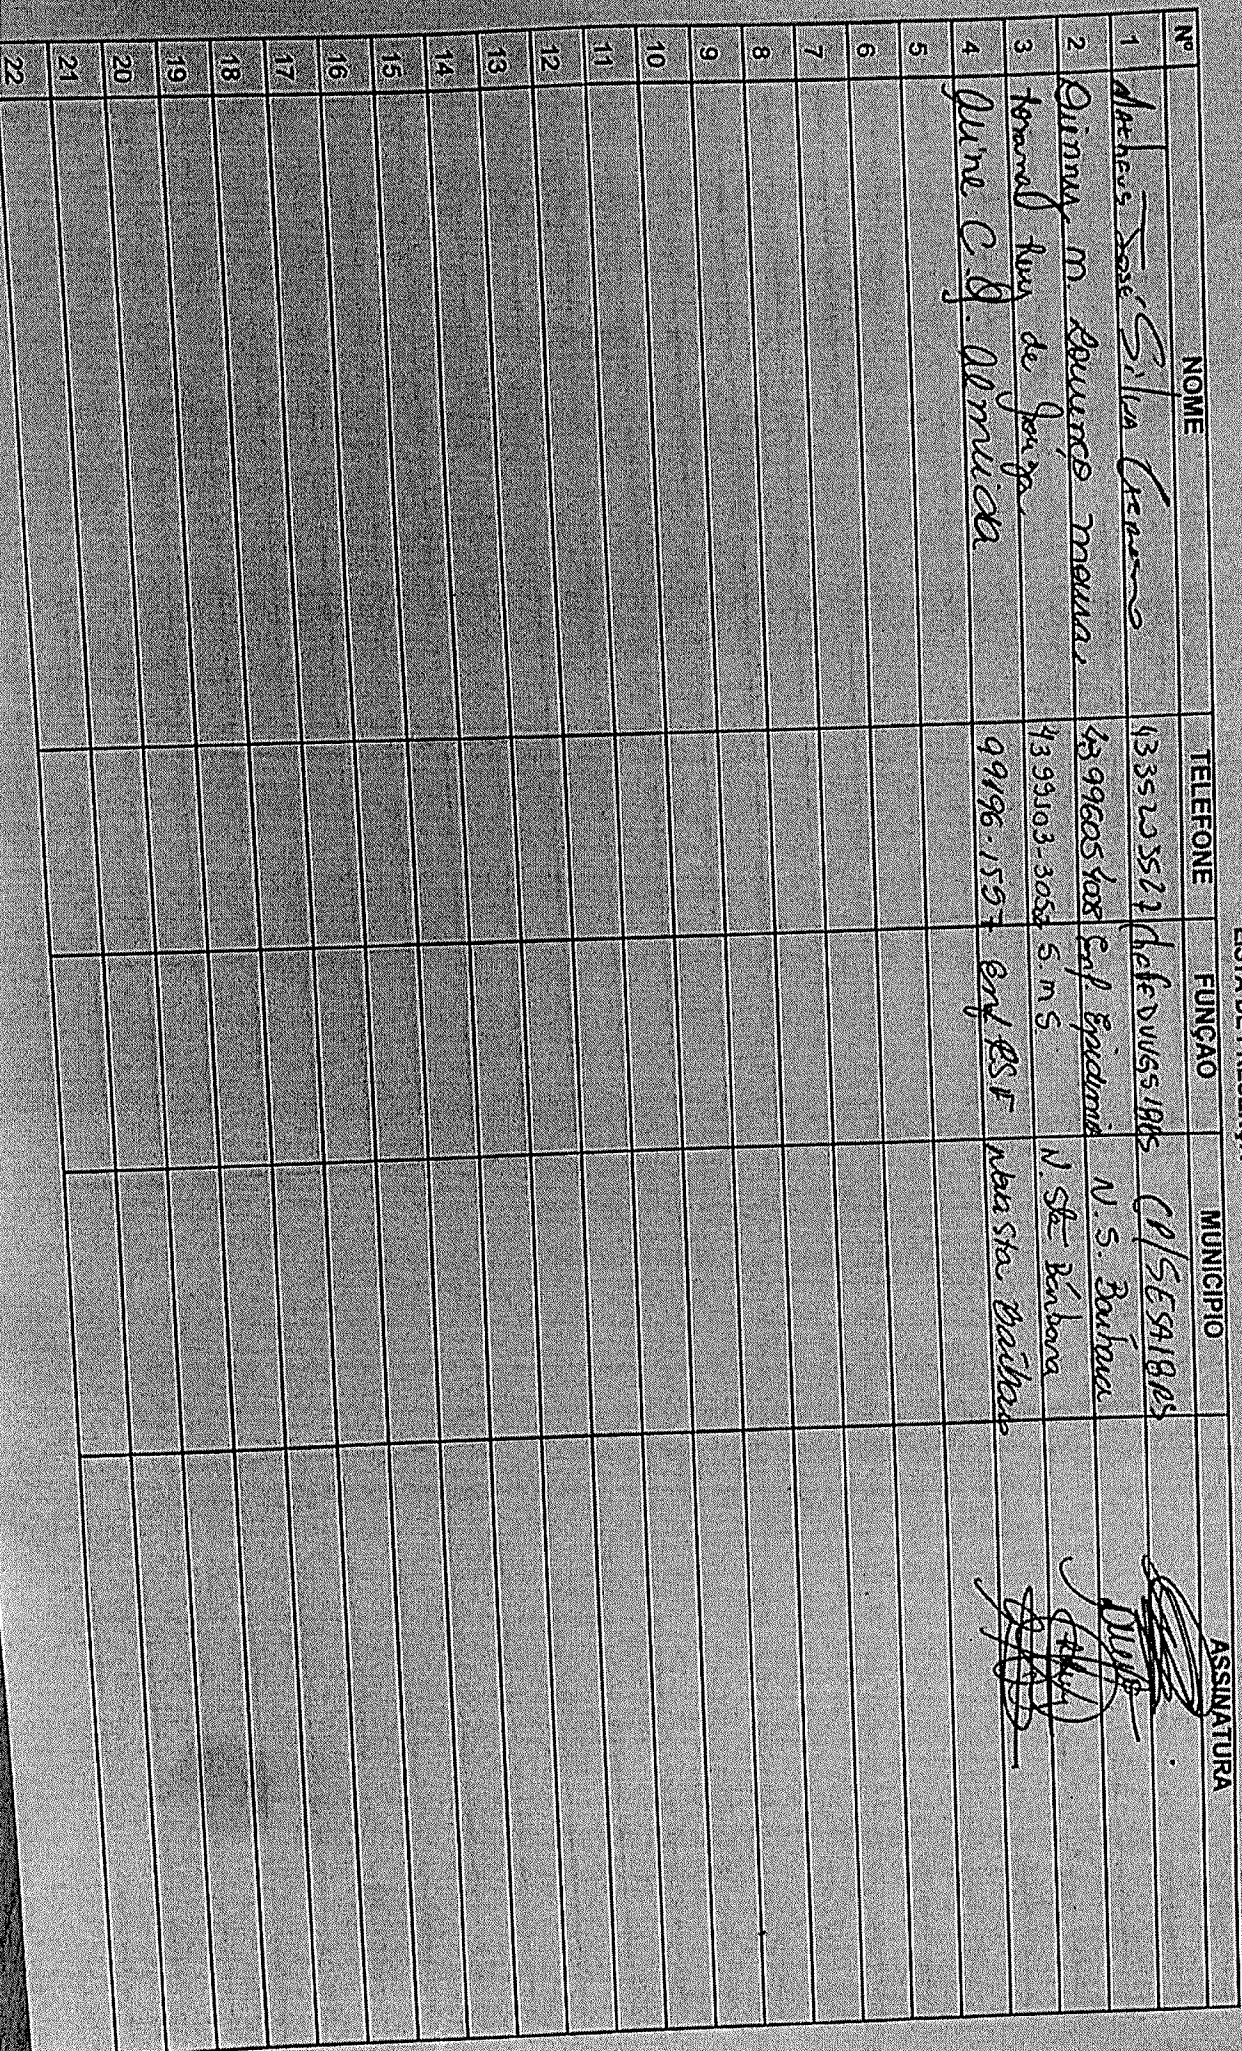 LISTA DE PRESENÇA
Nº NOME TELEFONE FUNÇÃO MUNICIPIO ASSINATURA
1 Matheus José Silva 43 35203527 chefe DVVGS 18RS CP/SESA 18RS
2 M. Lourenço Moura 43 99605408 Enf. Epidemio N. S. Bárbara
3 de Souza 43 99103-3052 S.M.S N. Sta Bárbara
4 C. G. Almeida 99196-1557 Enf ESF Nova Sta Bárbara
5
6
7
8
9
10
11
12
13
14
15
16
17
18
19
20
21
22